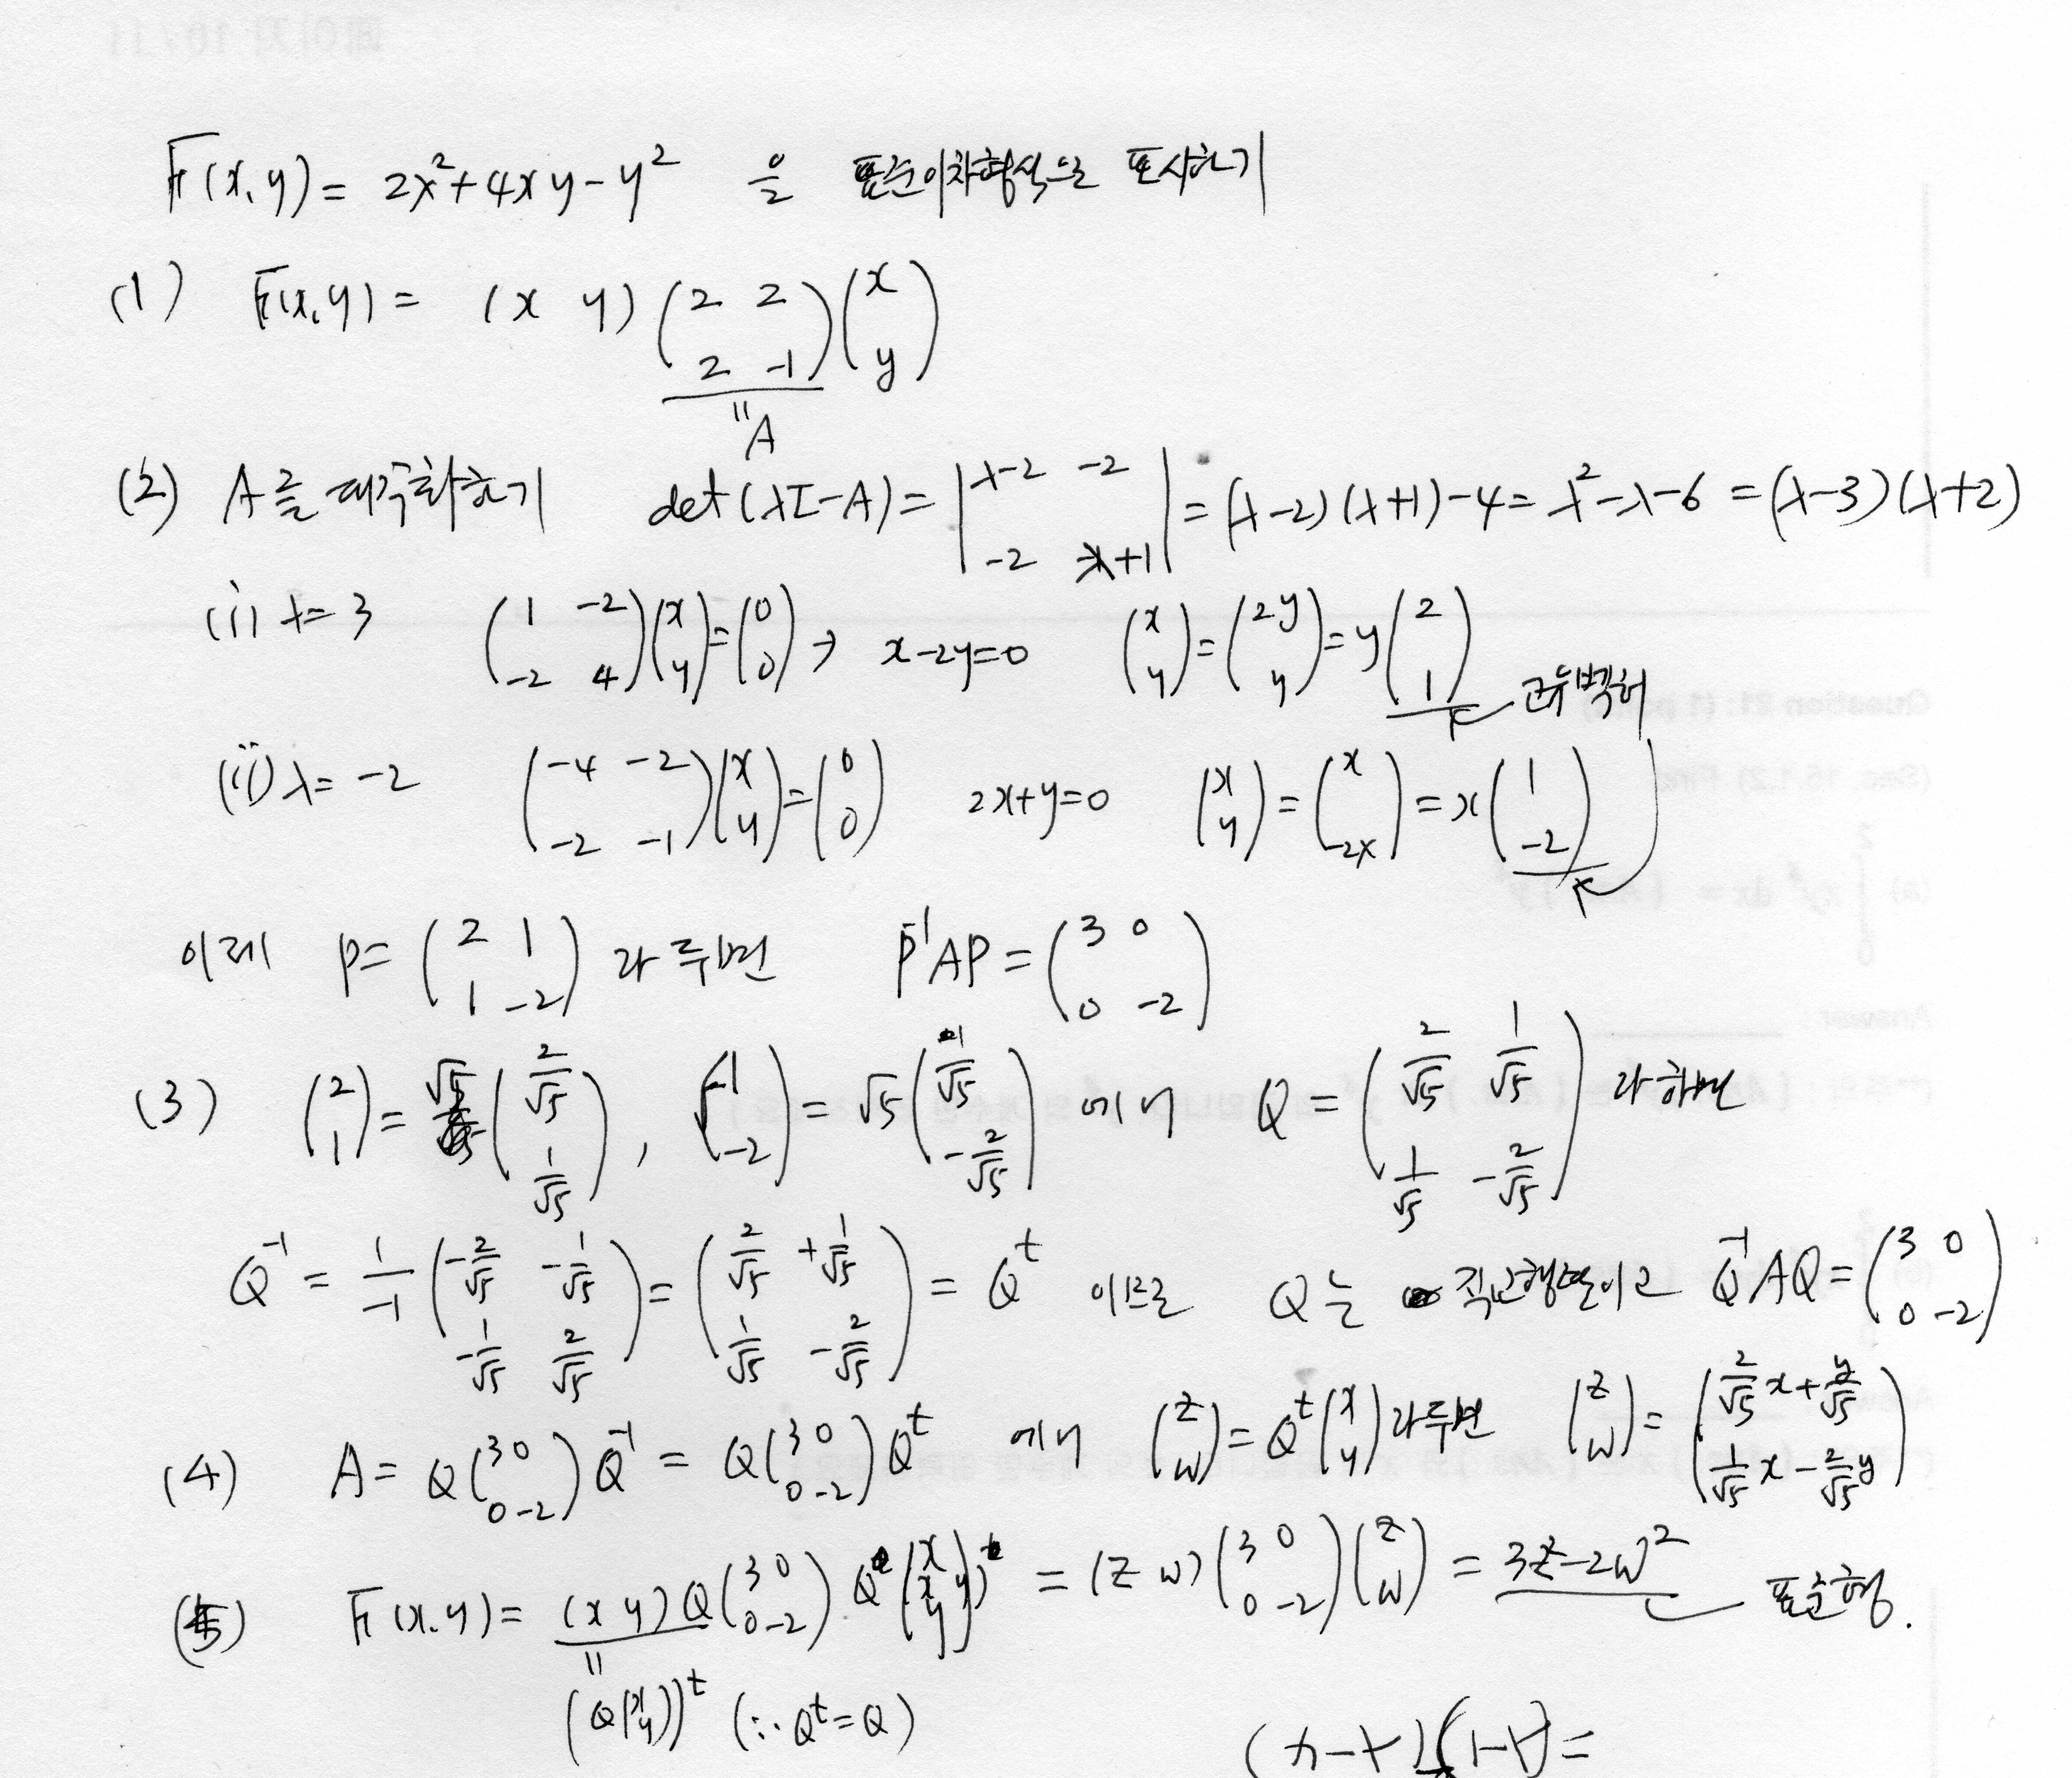 F(x,y) = 2x²+4xy-y² 을 표준이차형식으로 표시하기
(1) F(x,y) = (x y) (2 2 / 2 -1) (x / y)
" A
(2) A를 대각화하기 det(λI-A) = |λ-2 -2 / -2 λ+1| = (λ-2)(λ+1)-4 = λ²-λ-6 = (λ-3)(λ+2)
(i) λ=3 (1 -2 / -2 4)(x / y)=(0 / 0) → x-2y=0 (x / y)=(2y / y)=y(2 / 1) 고유벡터
(ii) λ=-2 (-4 -2 / -2 -1)(x / y)=(0 / 0) 2x+y=0 (x / y)=(x / -2x)=x(1 / -2)
이제 P=(2 1 / 1 -2) 라 두면 P⁻¹AP=(3 0 / 0 -2)
(3) (2 / 1)=√5(2/√5 / 1/√5), (1 / -2)=√5(1/√5 / -2/√5) 에서 Q=(2/√5 1/√5 / 1/√5 -2/√5) 라 하면
Q⁻¹ = 1/-1 (-2/√5 -1/√5 / -1/√5 2/√5) = (2/√5 +1/√5 / 1/√5 -2/√5) = Qᵗ 이므로 Q는 직교행렬이고 Q⁻¹AQ=(3 0 / 0 -2)
(4) A = Q(3 0 / 0 -2)Q⁻¹ = Q(3 0 / 0 -2)Qᵗ 에서 (z / w)=Qᵗ(x / y) 라 두면 (z / w)=(2/√5 x + y/√5 / 1/√5 x - 2/√5 y)
(5) F(x,y) = (x y)Q(3 0 / 0 -2) Q(x / y) = (z w)(3 0 / 0 -2)(z / w) = 3z²-2w² 표준형.
" (Q(x / y))ᵗ (∵ Qᵗ=Q)